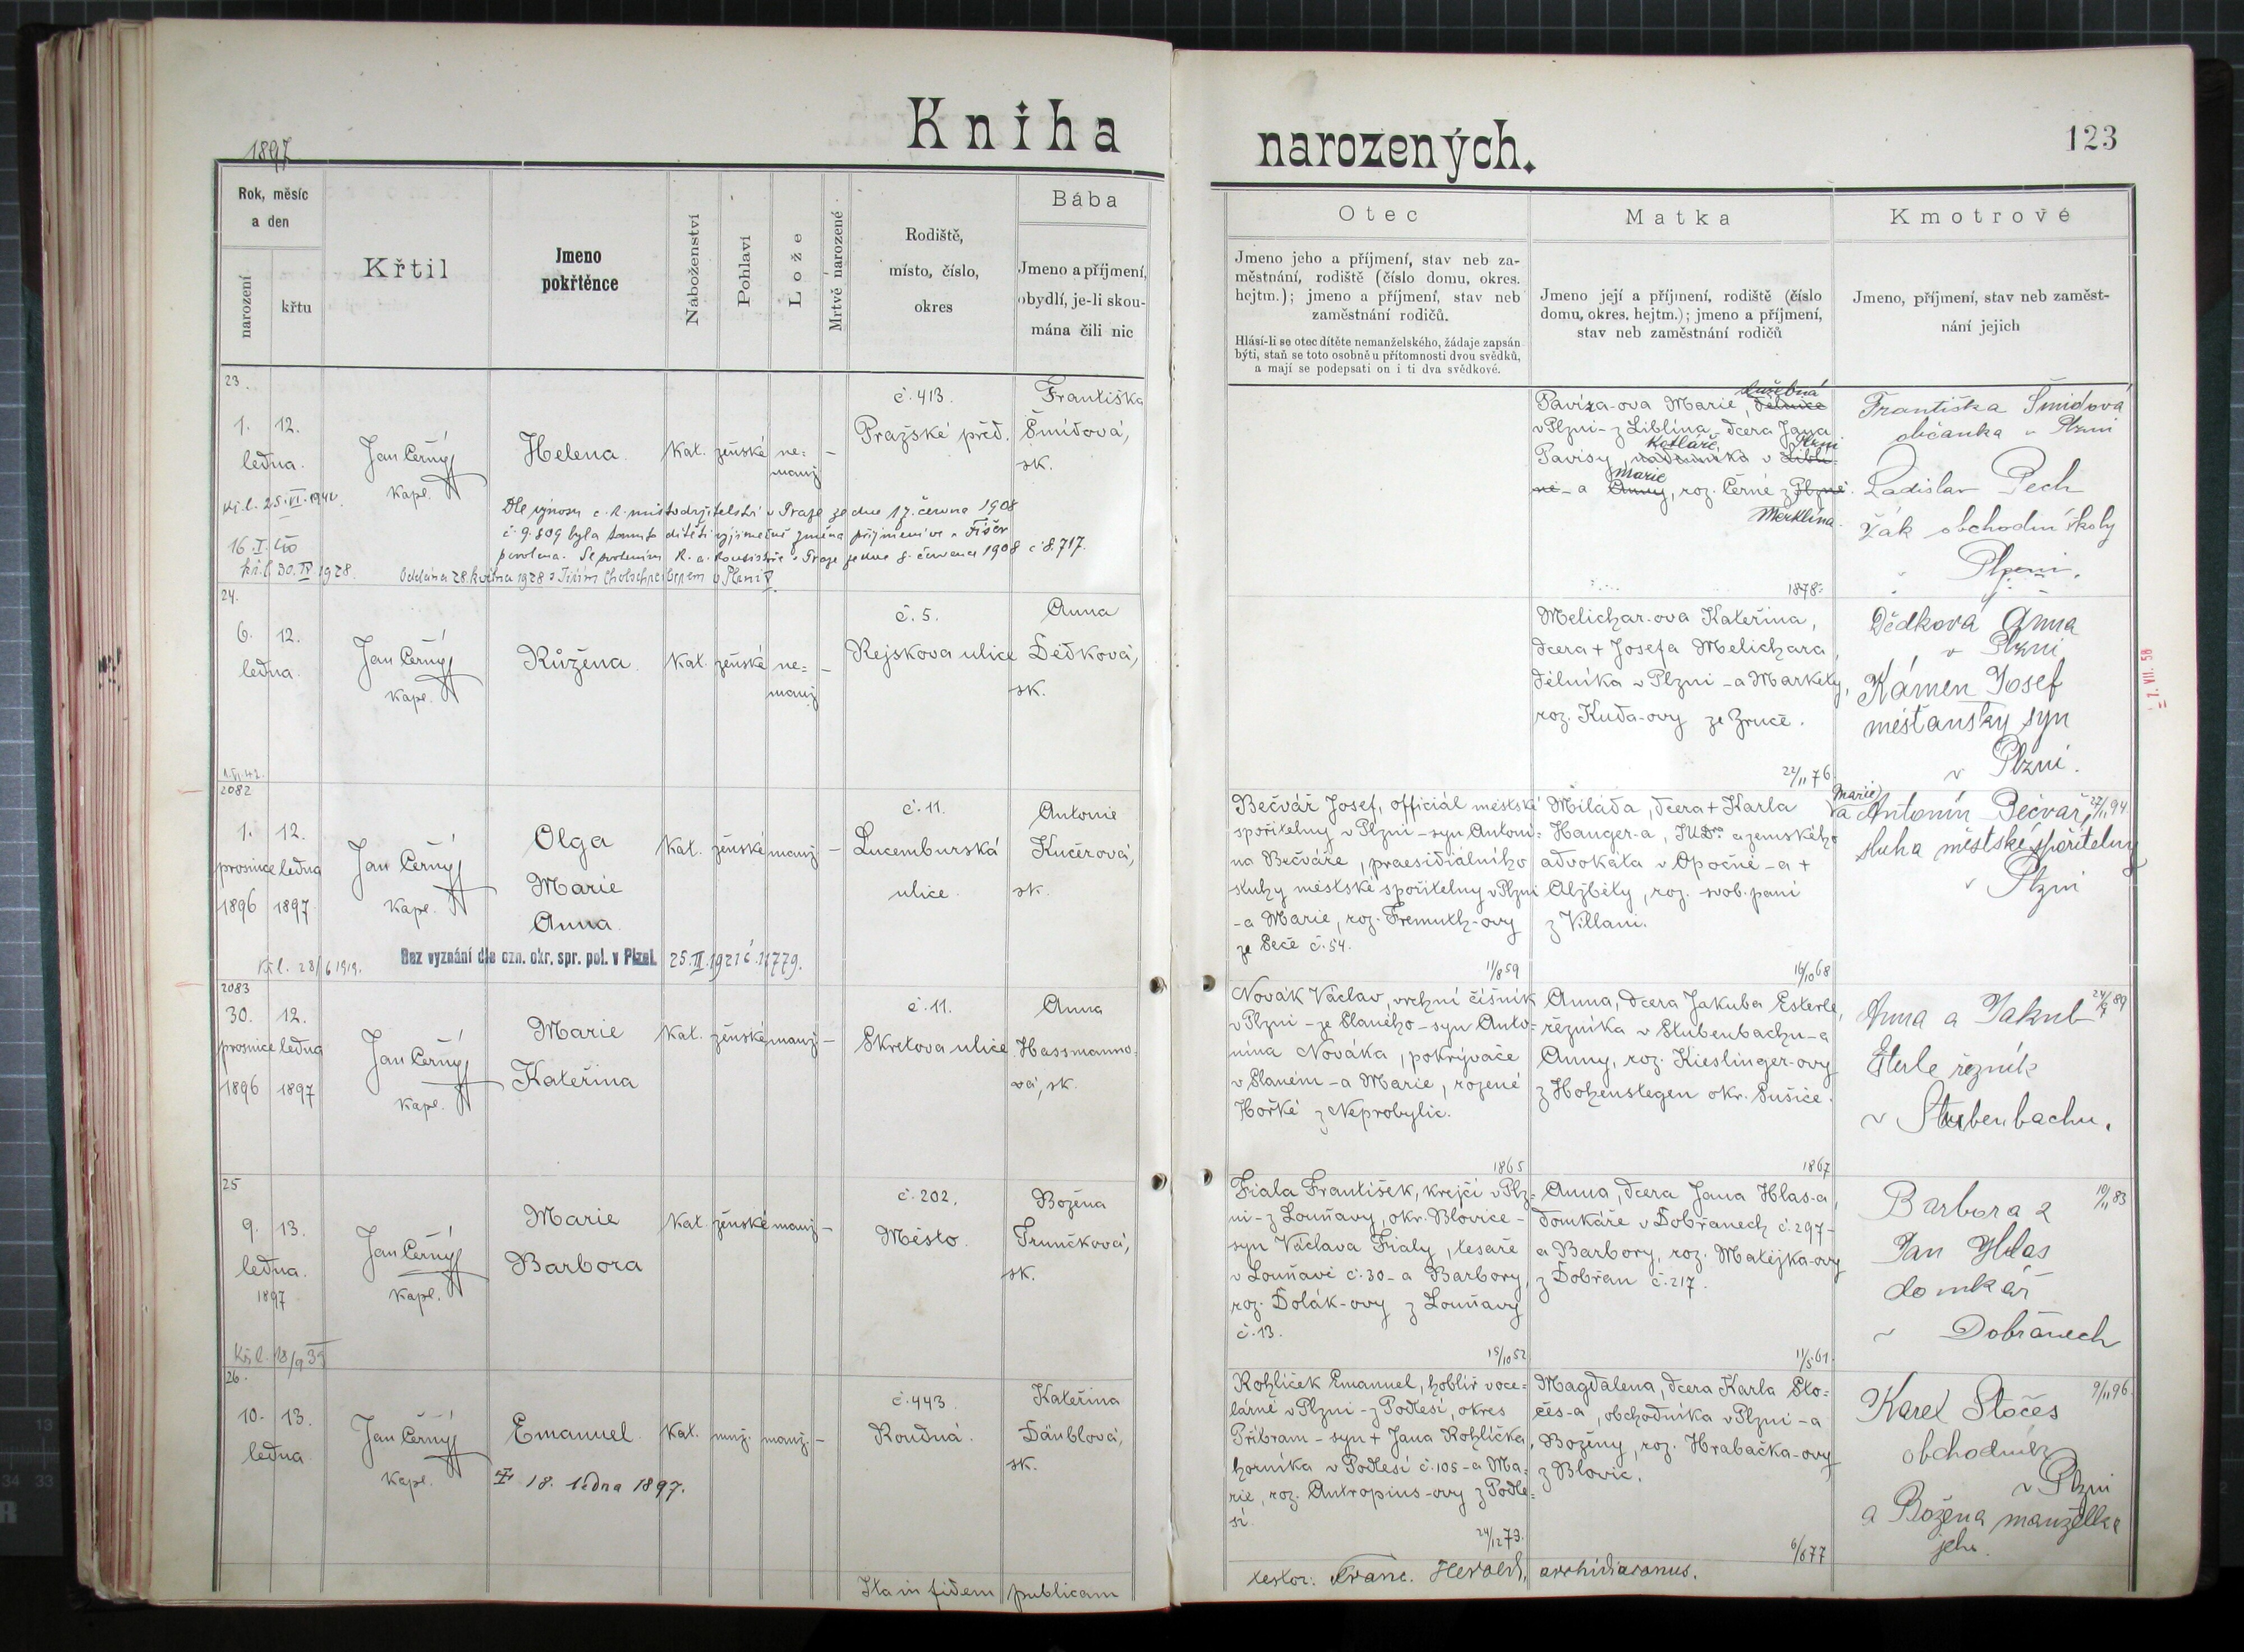 Kniha narozených.
1897
123
Rok, měsíc
a den
narození
křtu
Křtil
Jmeno
pokřtěnce
Náboženství
Pohlaví
Lože
Mrtvě narozené
Rodiště,
místo, číslo,
okres
Bába
Jmeno a příjmení,
obydlí, je-li skou-
mána čili nic
Otec
Jmeno jeho a příjmení, stav neb za-
městnání, rodiště (číslo domu, okres.
hejtm.); jmeno a příjmení, stav neb
zaměstnání rodičů.
Hlásí-li se otec dítěte nemanželského, žádaje zapsán
býti, staň se toto osobně u přítomnosti dvou svědků,
a mají se podepsati on i ti dva svědkové.
Matka
Jmeno její a příjmení, rodiště (číslo
domu, okres. hejtm.); jmeno a příjmení,
stav neb zaměstnání rodičů
Kmotrové
Jmeno, příjmení, stav neb zaměst-
nání jejich
23.
1. 12.
ledna.
Jan Černý
kapl.
Helena.
Kat.
ženské
ne=
manž
–
č. 413.
Pražské před.
Františka
Šmídová,
sk.
Kř. l. 25. VI. 1941
16. I.
kř. l. 30. IV 1928.
Dle výnosu c. k. místodržitelství v Praze ze dne 17. června 1908
č. 9.809 byla tomuto dítěti výjimečně změna příjmení ve "Fišer"
povolena. Se svolením k. a. konsistoře v Praze ze dne 8. července 1908 č 8.717.
Oddána 28. května 1928 s Jiřím
v Plzni
služebná
Paviza-ova Marie, dělnice
v Plzni - z Liblína - dcera Jana
kotláře, Plzni
Pavisy, v Libli-
Marie
ně - a Anny, roz. Černé z Plzně.
Merklína.
1878.
Františka Šmidová
občanka v Plzni
Ladislav Pech
žák obchodní školy
v Plzni.
24.
6. 12.
ledna.
Jan Černý
kapl.
Růžena.
Kat.
ženské
ne=
manž
–
č. 5.
Rejskova ulice
Anna
Dědková,
sk.
1. VI. 42.
Melichar-ova Kateřina,
dcera + Josefa Melichara,
dělníka v Plzni - a Markety,
roz. Kuda-ovy ze Zruče.
22/11 76.
Dědková Anna
v Plzni
Kámen Josef
měšťanský syn
v Plzni.
– 7. VII. 58
2082
1. 12.
prosince ledna
1896 1897
Jan Černý
kapl.
Olga
Marie
Anna.
Kat.
ženské
manž
–
č. 11.
Lucemburská
ulice.
Antonie
Kučerová,
sk.
Kř. l. 28/6 1919.
Bez vyznání dle ozn. okr. spr. pol. v Plzni. 25. III. 1921 č. 11779.
Bečvář Josef, officiál městské
spořitelny v Plzni - syn Antoni=
na Bečváře, praesidiálního
sluhy městské spořitelny v Plzni
- a Marie, roz. Fremuth-ovy
ze Seče č. 54.
11/8 59
Miláda, dcera + Karla
Hanger-a, JUDra a zemského
advokáta v Opočně - a +
Alžběty, roz. svob. paní
z Villani.
16/10 68
Marie
a Antonín Bečvař, 27/11 94.
sluha městské spořitelny
v Plzni
2083
30. 12.
prosince ledna
1896 1897
Jan Černý
kapl.
Marie
Kateřina
Kat.
ženské
manž
–
č. 11.
Skretova ulice
Anna
Hassmanno-
vá, sk.
Novák Václav, vrchní číšník
v Plzni - ze Slaného - syn Anto=
nína Nováka, pokrývače
v Slaném - a Marie, rozené
Hořké z Neprobylic.
1865
Anna, dcera Jakuba Esterle,
řezníka v Stubenbachu - a
Anny, roz. Kieslinger-ovy
z Hohenstegen okr. Sušice.
1867
Anna a Jakub
Esterle řezník
v Stubenbachu.
25
9. 13.
ledna.
1897
Jan Černý
kapl.
Marie
Barbora
Kat.
ženské
manž
–
č. 202.
Město.
Božena
Trunčková,
sk.
Kř. l. 18/9 39
Fiala František, krejčí v Plz=
ni - z Louňavy, okr. Blovice -
syn Václava Fialy, tesaře
v Louňavě č. 30 - a Barbory,
roz. Dolák-ovy z Louňavy
č. 13.
15/10 52
Anna, dcera Jana Hlas-a,
domkáře v Dobřanech č. 297 -
a Barbory, roz. Matějka-ovy
z Dobřan č. 217.
11/5 61.
Barbora a 10/11 83
Jan Hlas
domkář
v Dobřanech
26.
10. 13.
ledna
Jan Černý
kapl.
Emanuel.
Kat.
muž.
manž.
–
č. 443.
Roudná.
Kateřina
Däublová,
sk.
† 18. ledna 1897.
Rohlíček Emanuel, hoblíř v oce=
lárně v Plzni - z Podlesí, okres
Příbram - syn + Jana Rohlíčka,
horníka v Podlesí č. 105 - a Ma=
rie, roz. Antropius-ovy z Podle=
sí.
24/12 73.
Magdalena, dcera Karla Sto=
čes-a, obchodníka v Plzni - a
Boženy, roz. Hrabačka-ovy
z Blovic.
6/6 77
Karel Stočes 9/11 96.
obchodník
v Plzni
a Božena manželka
jeho.
Ita in fidem publicam
testor: Franc. Herold, archidiaconus.